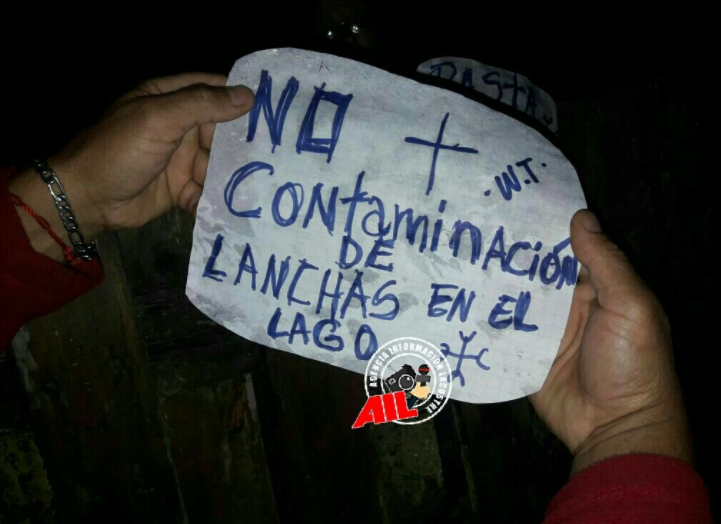 BASTA
NO +
.W.T.
CONtaminACIÓN
DE
LANCHAS EN EL
LAGO
AGENCIA INFORMACION LACUSTRE
AIL